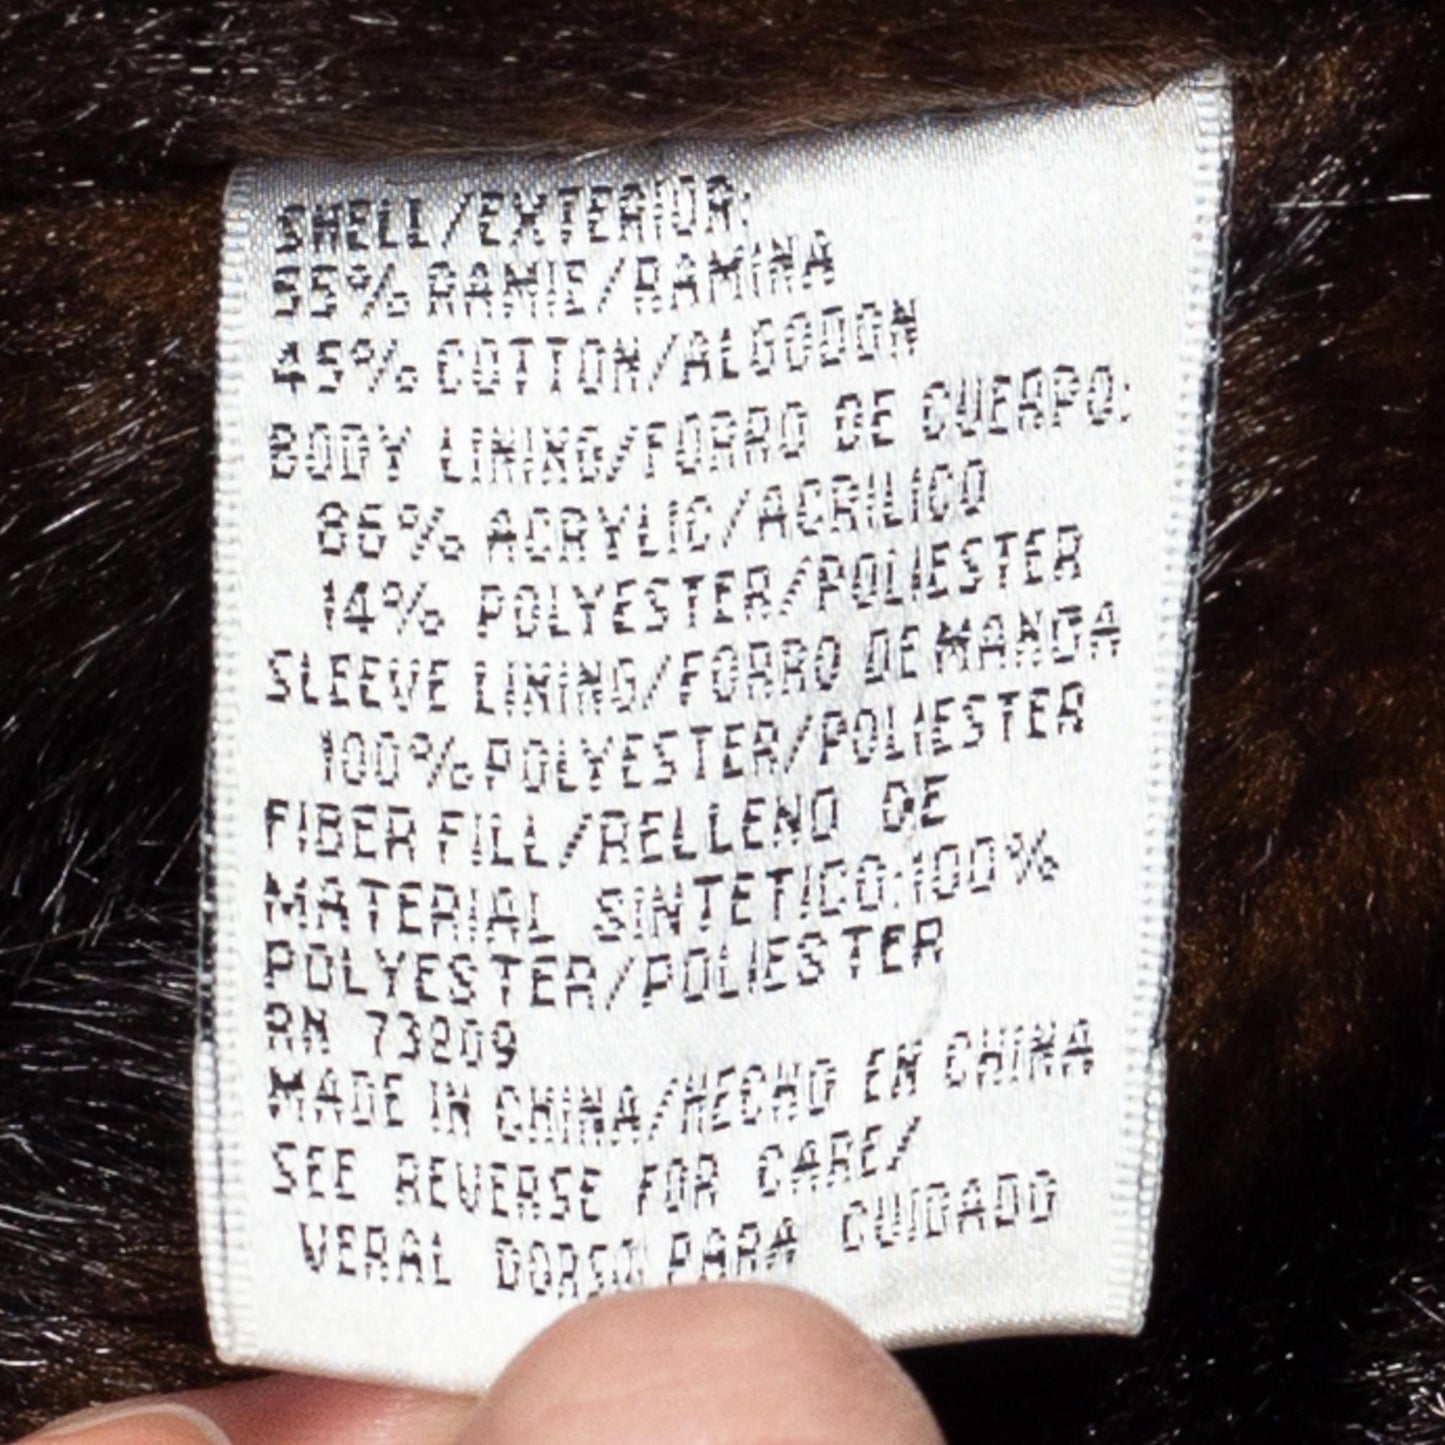 SHELL/EXTERIOR:
55% RAMIE/RAMINA
45% COTTON/ALGODON
BODY LINING/FORRO DE CUERPO:
86% ACRYLIC/ACRILICO
14% POLYESTER/POLIESTER
SLEEVE LINING/FORRO DE MANGA
100% POLYESTER/POLIESTER
FIBER FILL/RELLENO DE
MATERIAL SINTETICO:100%
POLYESTER/POLIESTER
RN 73209
MADE IN CHINA/HECHO EN CHINA
SEE REVERSE FOR CARE/
VERAL DORSO PARA CUIDADO